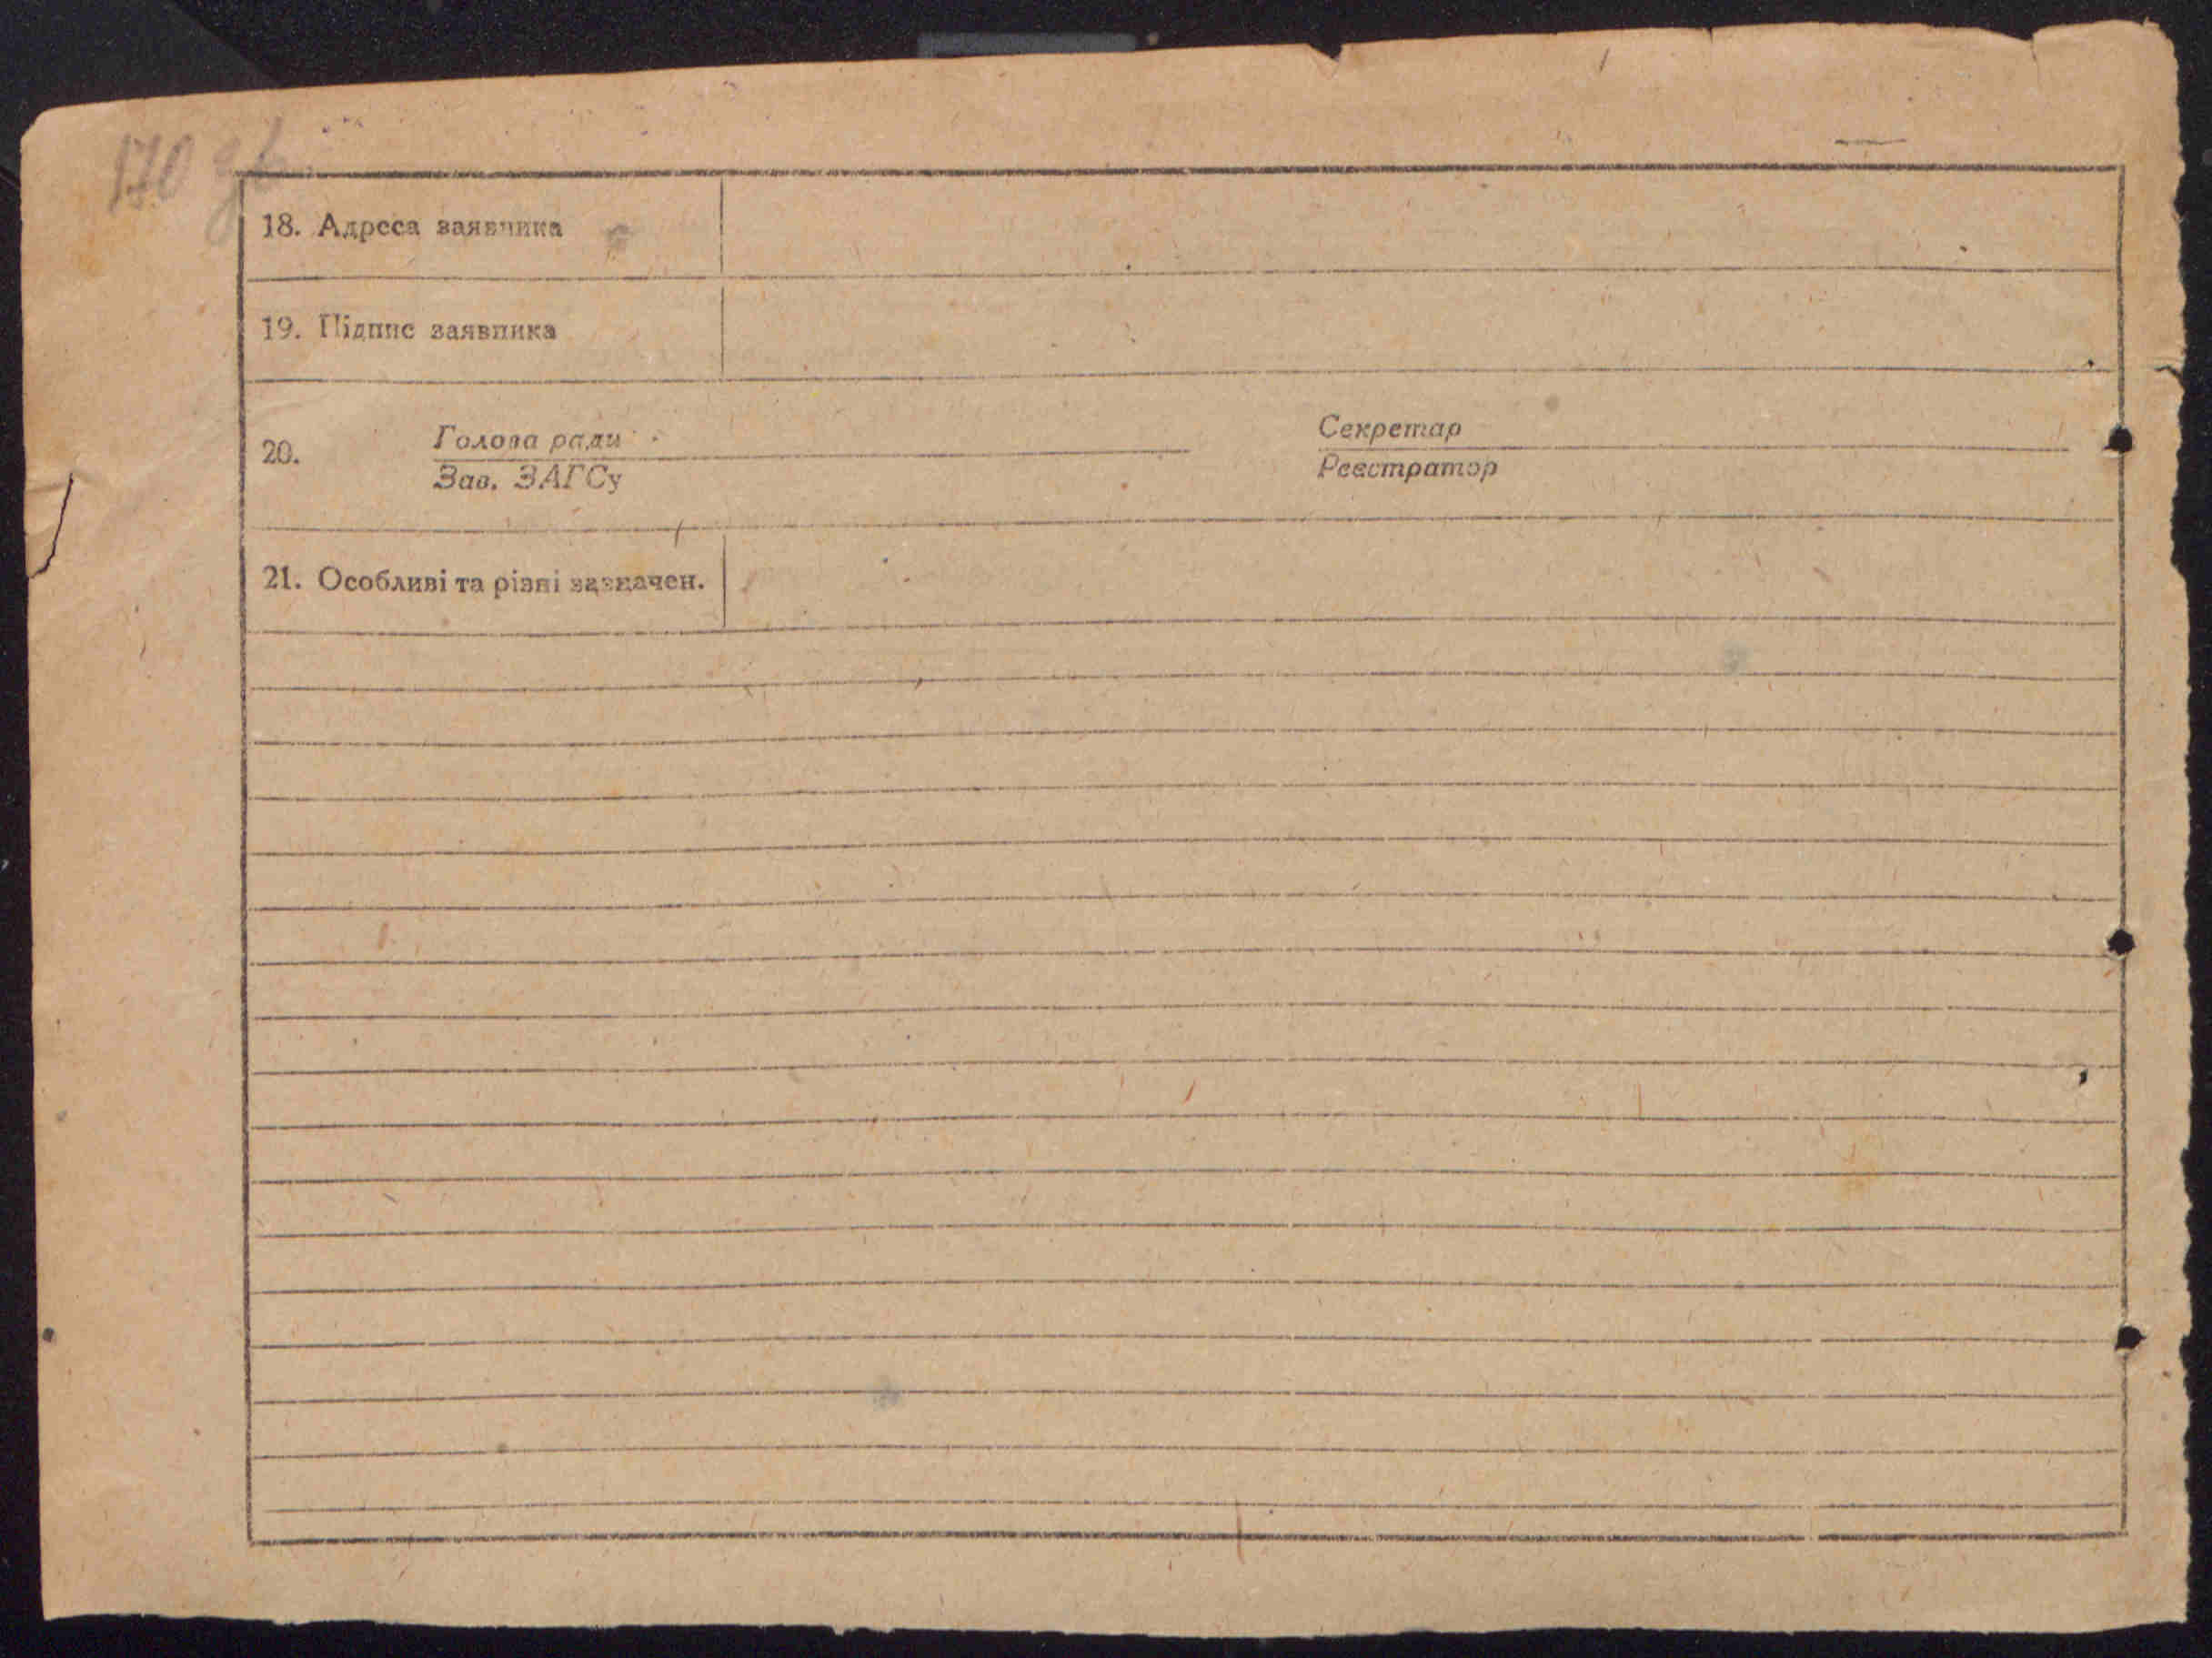 170 зв.
18. Адреса заявника
19. Підпис заявника
20. Голова ради Секретар
Зав. ЗАГСу Реєстратор
21. Особливі та різні зазначен.